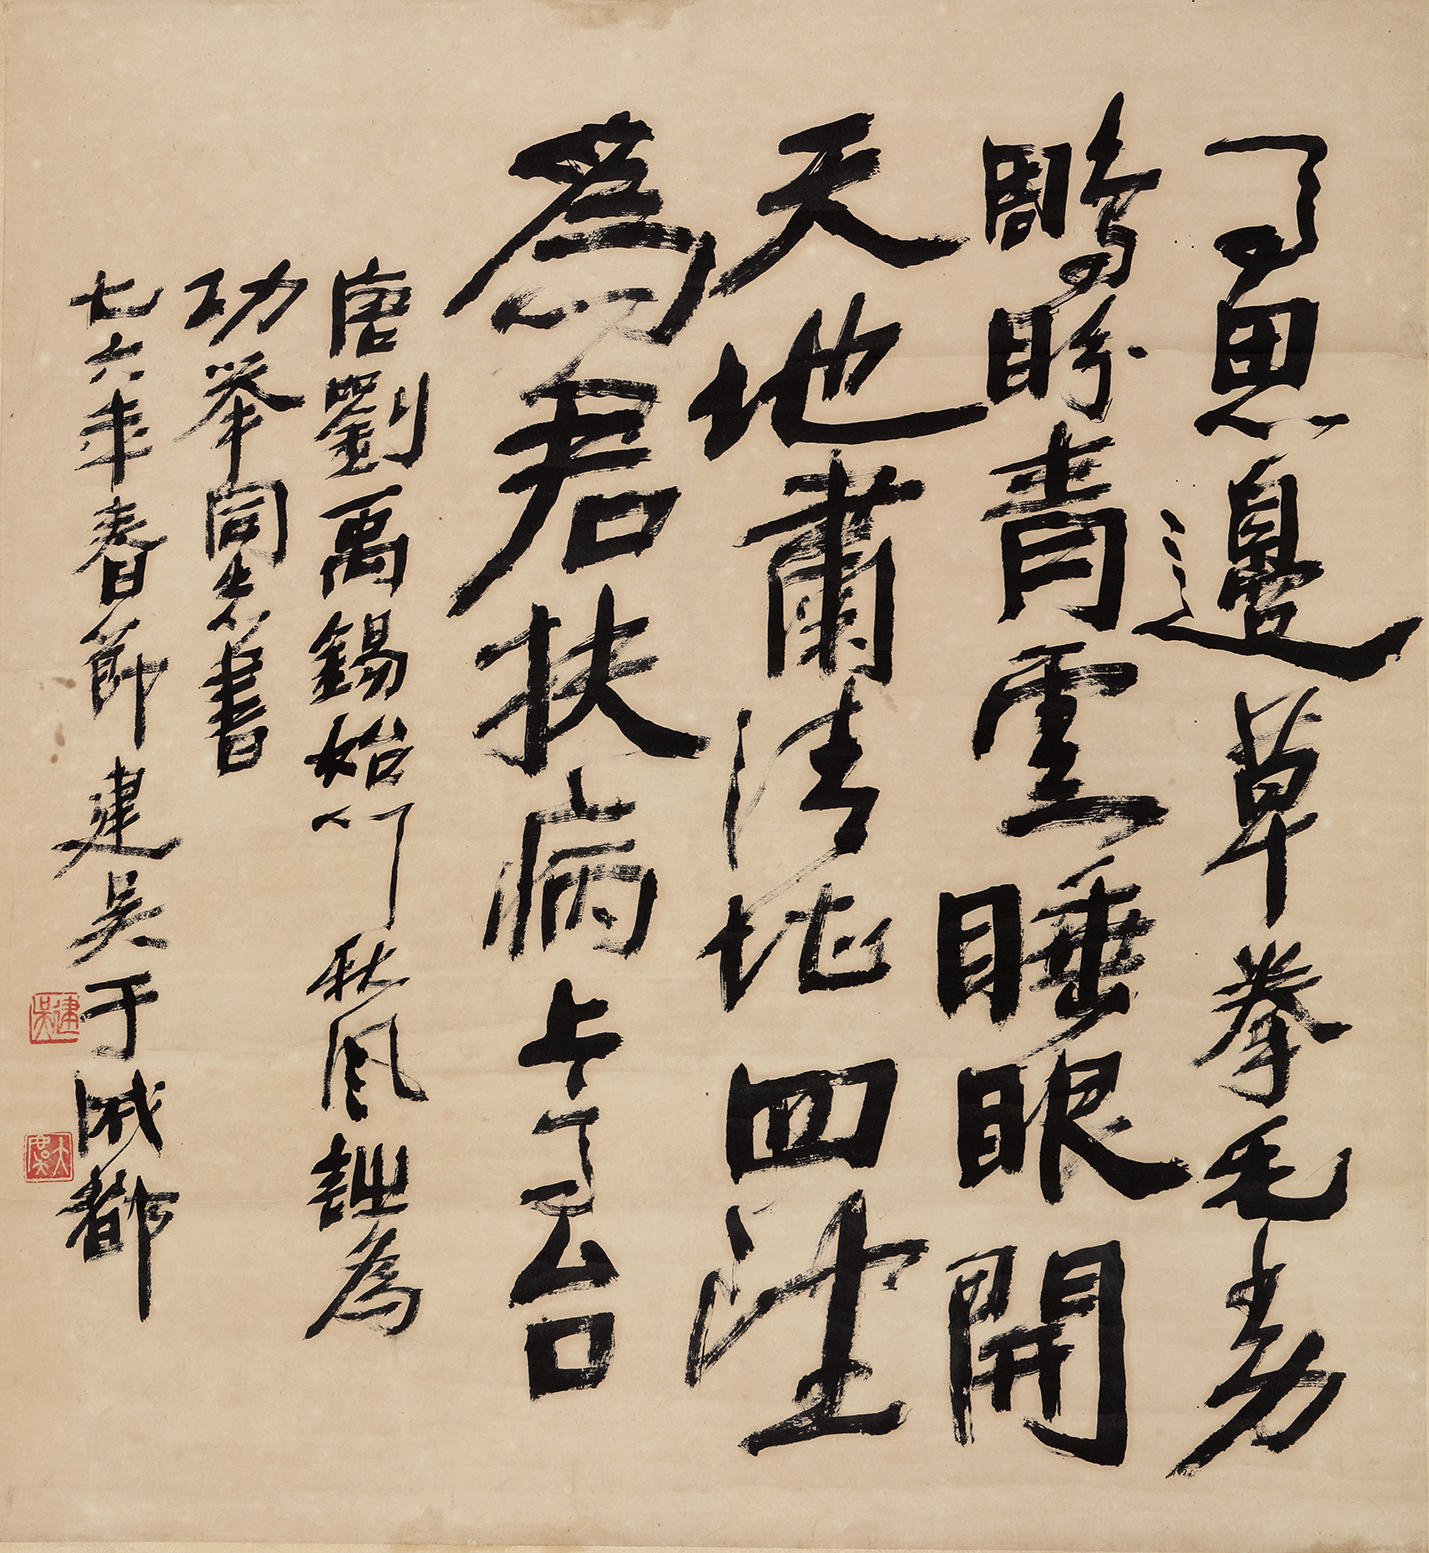 馬思邊草拳毛動
鵰盼青雲睡眼開
天地肅清堪四望
為君扶病上高台
唐劉禹錫始聞秋風詩為
功举同志書
七六年春節建吴于成都
建吳